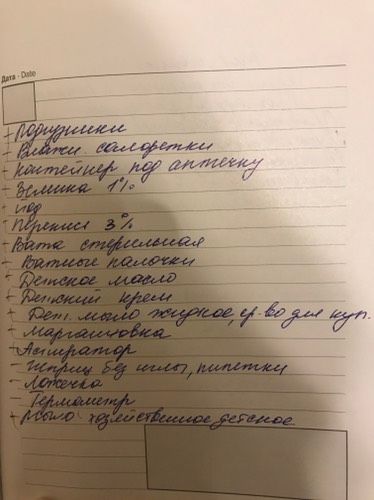 Дата · Date
- Подгузники
- Влажн. салфетки
- Контейнер под аптечку
- Зелёнка 1%
- Йод
- Перекись 3%
- Вата стерильная
- Ватные палочки
- Детское масло
- Детский крем
- Дет. мыло жидкое, ср-во для куп.
- Марганцовка
- Аспиратор
- Шприц без иглы, пипетки
- Ложечка
- Термометр
- Мыло хозяйственное детское